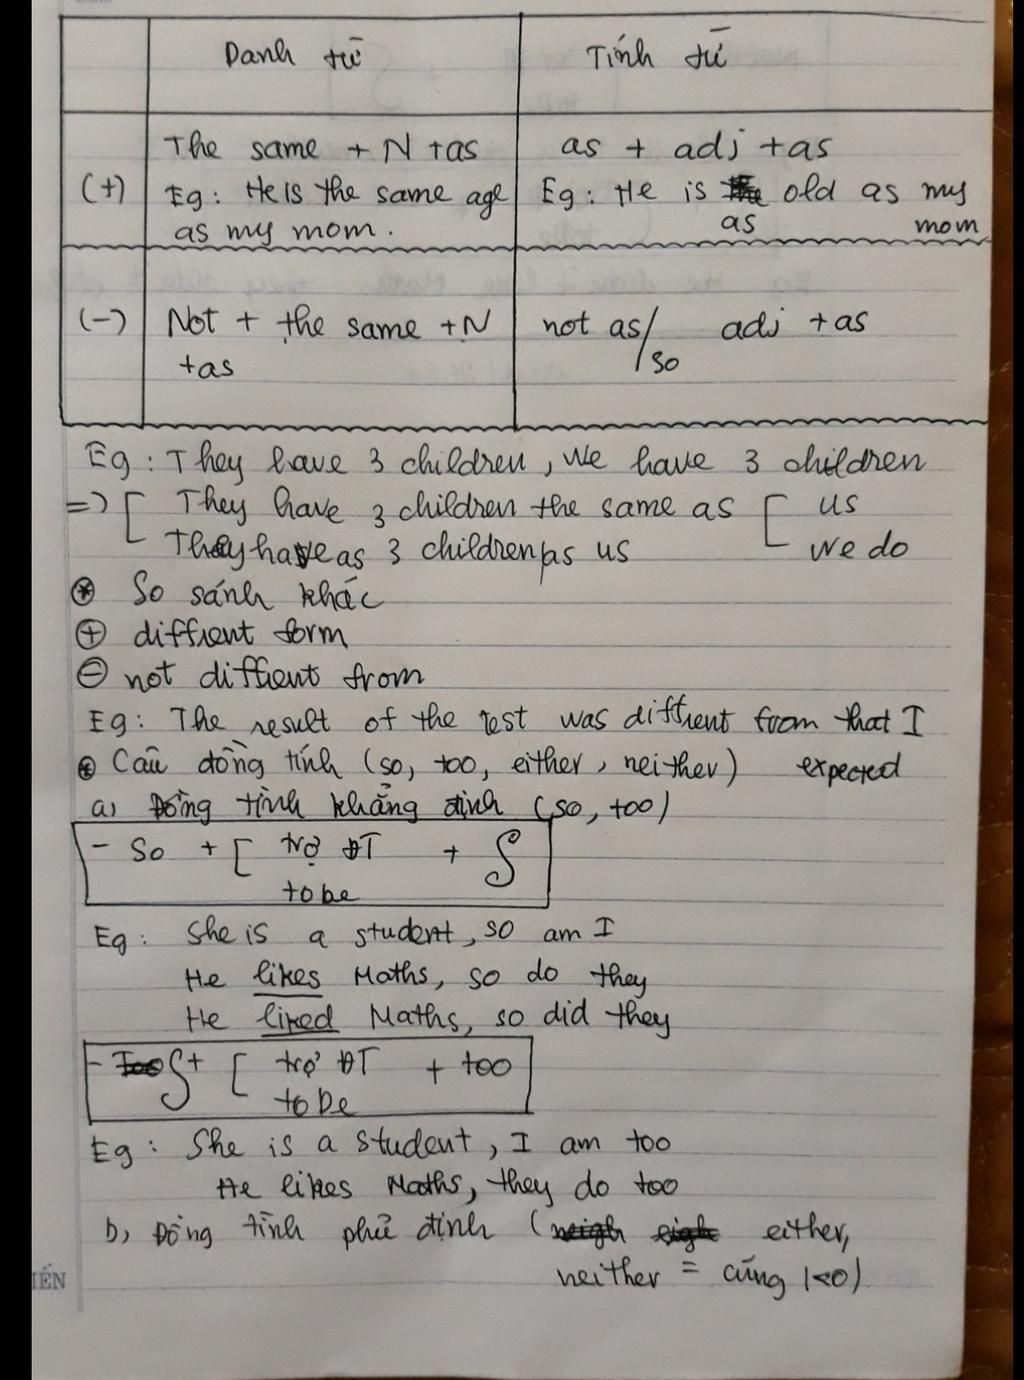 Danh từ Tính từ
(+) The same + N + as
Eg: He is the same age
as my mom.
as + adj + as
Eg: He is old as my
as mom
(-) Not + the same + N
+ as
not as/ adj + as
so
Eg: They have 3 children, We have 3 children
=> [ They have 3 children the same as [ us
They have as 3 children as us we do
* So sánh khác
+ diffrent form
- not diffrent from
Eg: The result of the test was diffrent from that I
expected
* Câu đồng tình (so, too, either, neither)
a, Đồng tình khẳng định (so, too)
- So + [ trợ ĐT + S
to be
Eg: She is a student, so am I
He likes Maths, so do they
He liked Maths, so did they
- S + [ trợ ĐT + too
to be
Eg: She is a student, I am too
He likes Maths, they do too
b, Đồng tình phủ định ( either,
neither = cũng ko)
IẾN